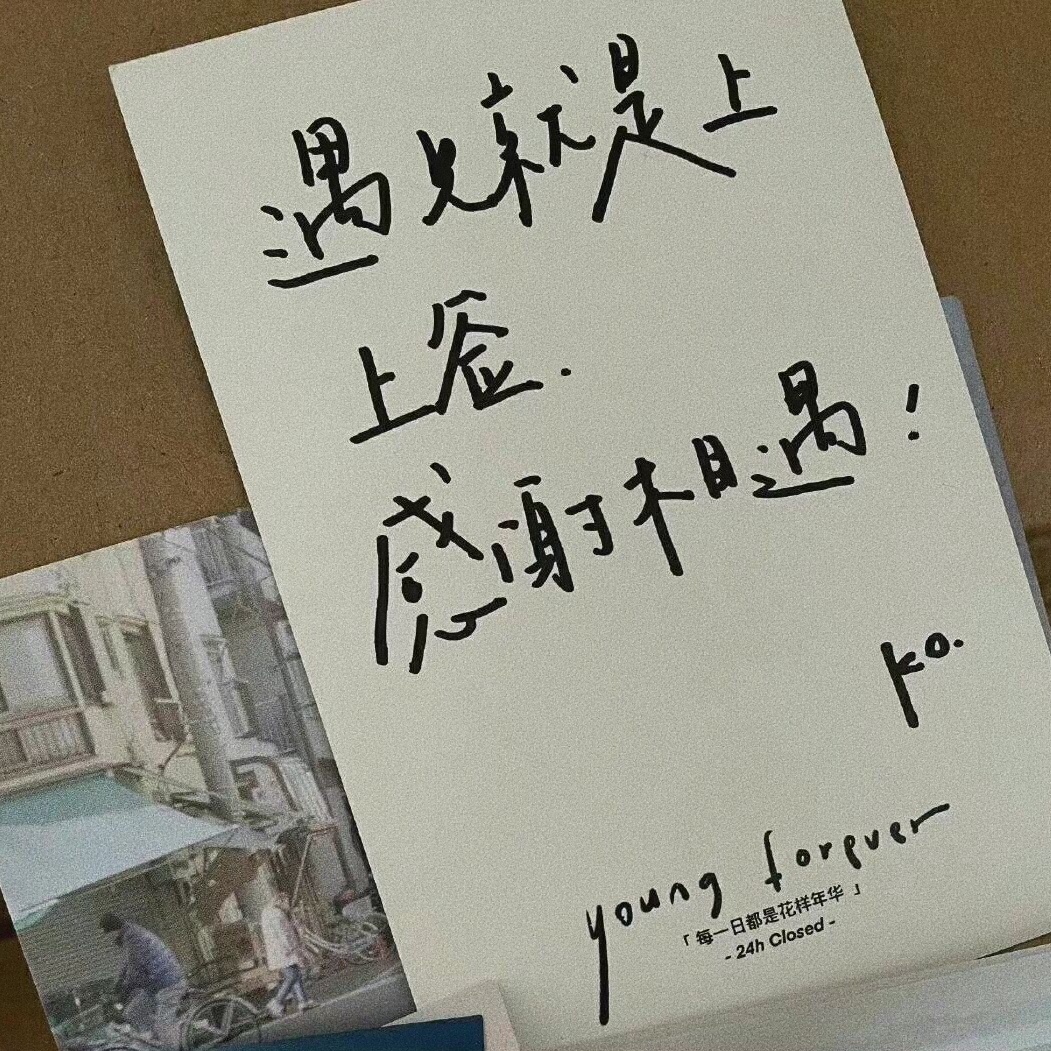 遇见就是上
上签.
感谢相遇！
ko.
young forever
「每一日都是花样年华」
- 24h Closed -